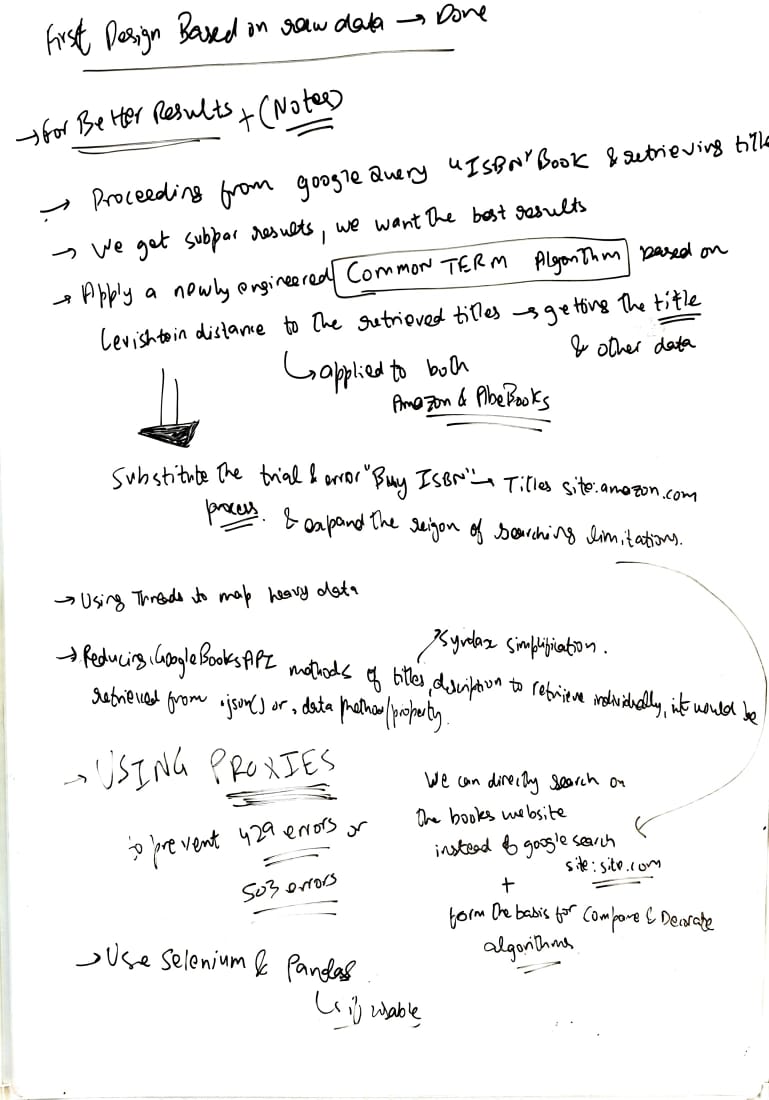 First Design Based on raw data → Done
→ for Better Results + (Notes)
→ Proceeding from google Query "ISBN" Book & retrieving title
→ We get subpar results, we want the best results
→ Apply a newly engineered Common TERM Algorithm based on
Levishtein distance to the retrieved titles → getting the title
& other data
↳ applied to both
Amazon & AbeBooks
Substitute the trial & error "Buy ISBN" → Titles site:amazon.com
process. & expand the reigon of searching limitations.
→ Using Threads to map heavy data
Syndax simplification.
→ Reducing GoogleBooksAPI methods of titles, description to retrieve individually, it would be
retrieved from .json() or .data method/property.
→ USING PROXIES
to prevent 429 errors or
503 errors
We can directly search on
the books website
instead of google search
site:site.com
+
form the basis for Compare & Decorate
algorithms
→ Use Selenium & Pandas
↳ if usable